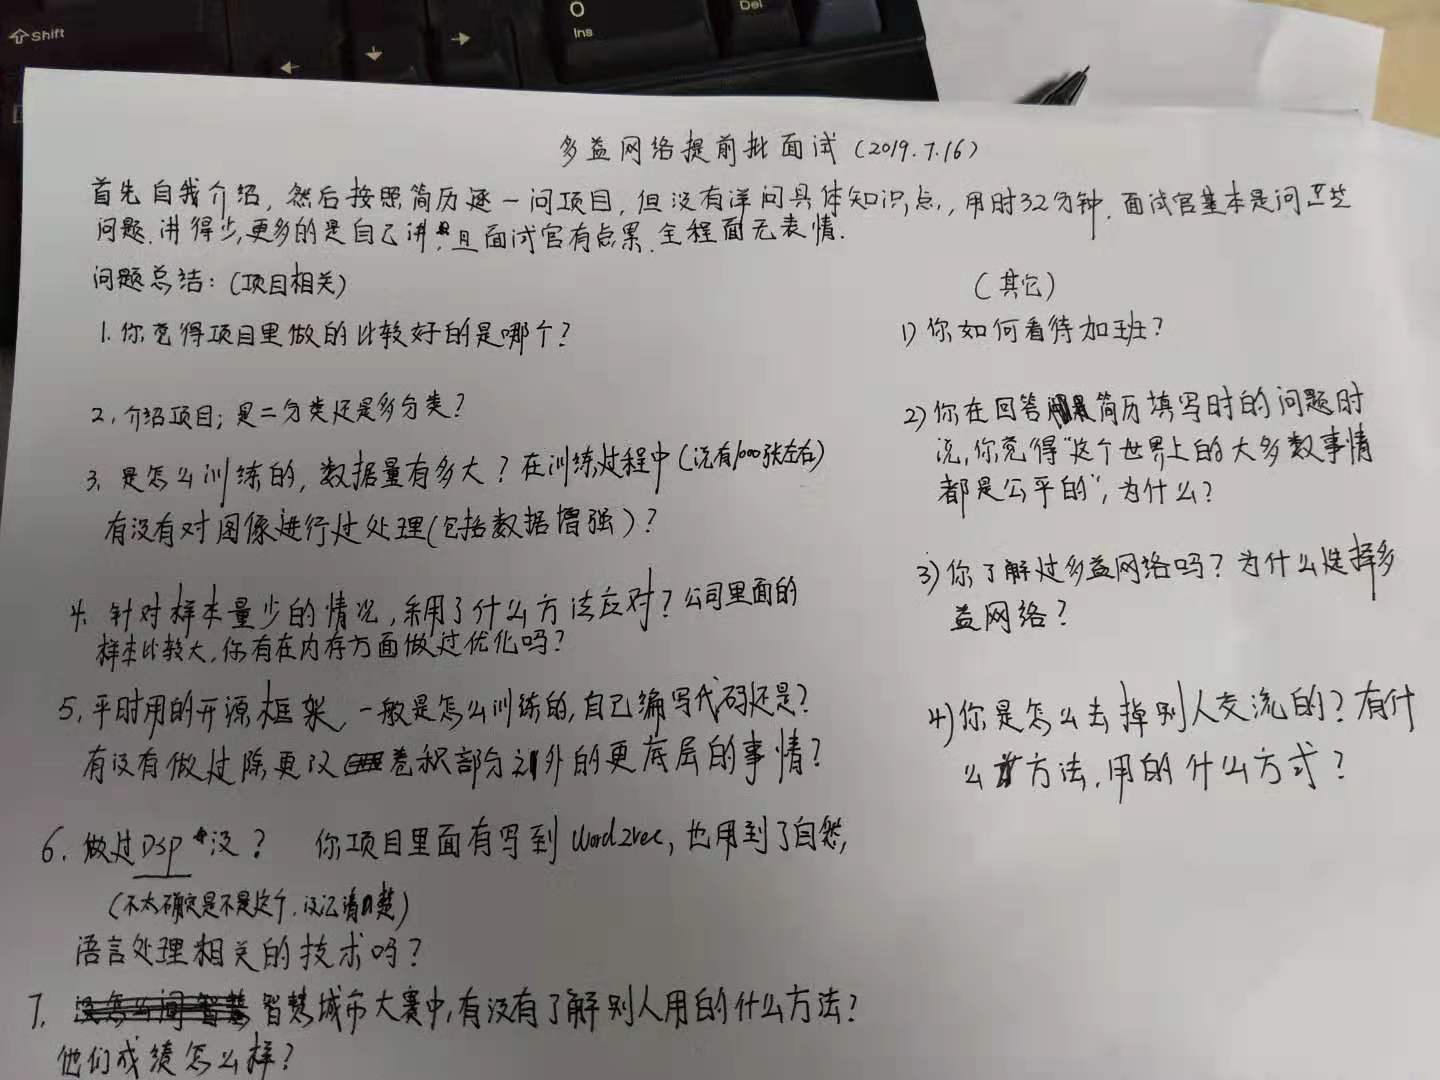 Shift
0
Ins
Del
多益网络提前批面试（2019.7.16）
首先自我介绍，然后按照简历逐一问项目，但没有详问具体知识点，用时32分钟，面试官基本是问一些
问题，讲得少，更多的是自己讲，且面试官有点累，全程面无表情.
问题总结：（项目相关）
1. 你觉得项目里做的比较好的是哪个？
2. 介绍项目；是二分类还是多分类？
3. 是怎么训练的，数据量有多大？在训练过程中（说有1000张左右）
有没有对图像进行过处理（包括数据增强）？
4. 针对样本量少的情况，采用了什么方法应对？公司里面的
样本比较大，你有在内存方面做过优化吗？
5. 平时用的开源框架，一般是怎么训练的，自己编写代码还是？
有没有做过除更改卷积部分之外的更底层的事情？
6. 做过DSP没？ 你项目里面有写到Word2vec，也用到了自然，
（不太确定是不是这个，没记清楚）
语言处理相关的技术吗？
7. 没怎么问智慧 智慧城市大赛中，有没有了解别人用的什么方法？
他们成绩怎么样？
（其它）
1）你如何看待加班？
2）你在回答简历填写时的问题时
说，你觉得“这个世界上的大多数事情
都是公平的”，为什么？
3）你了解过多益网络吗？为什么选择多
益网络？
4）你是怎么去掉别人交流的？有什
么方法，用的什么方式？